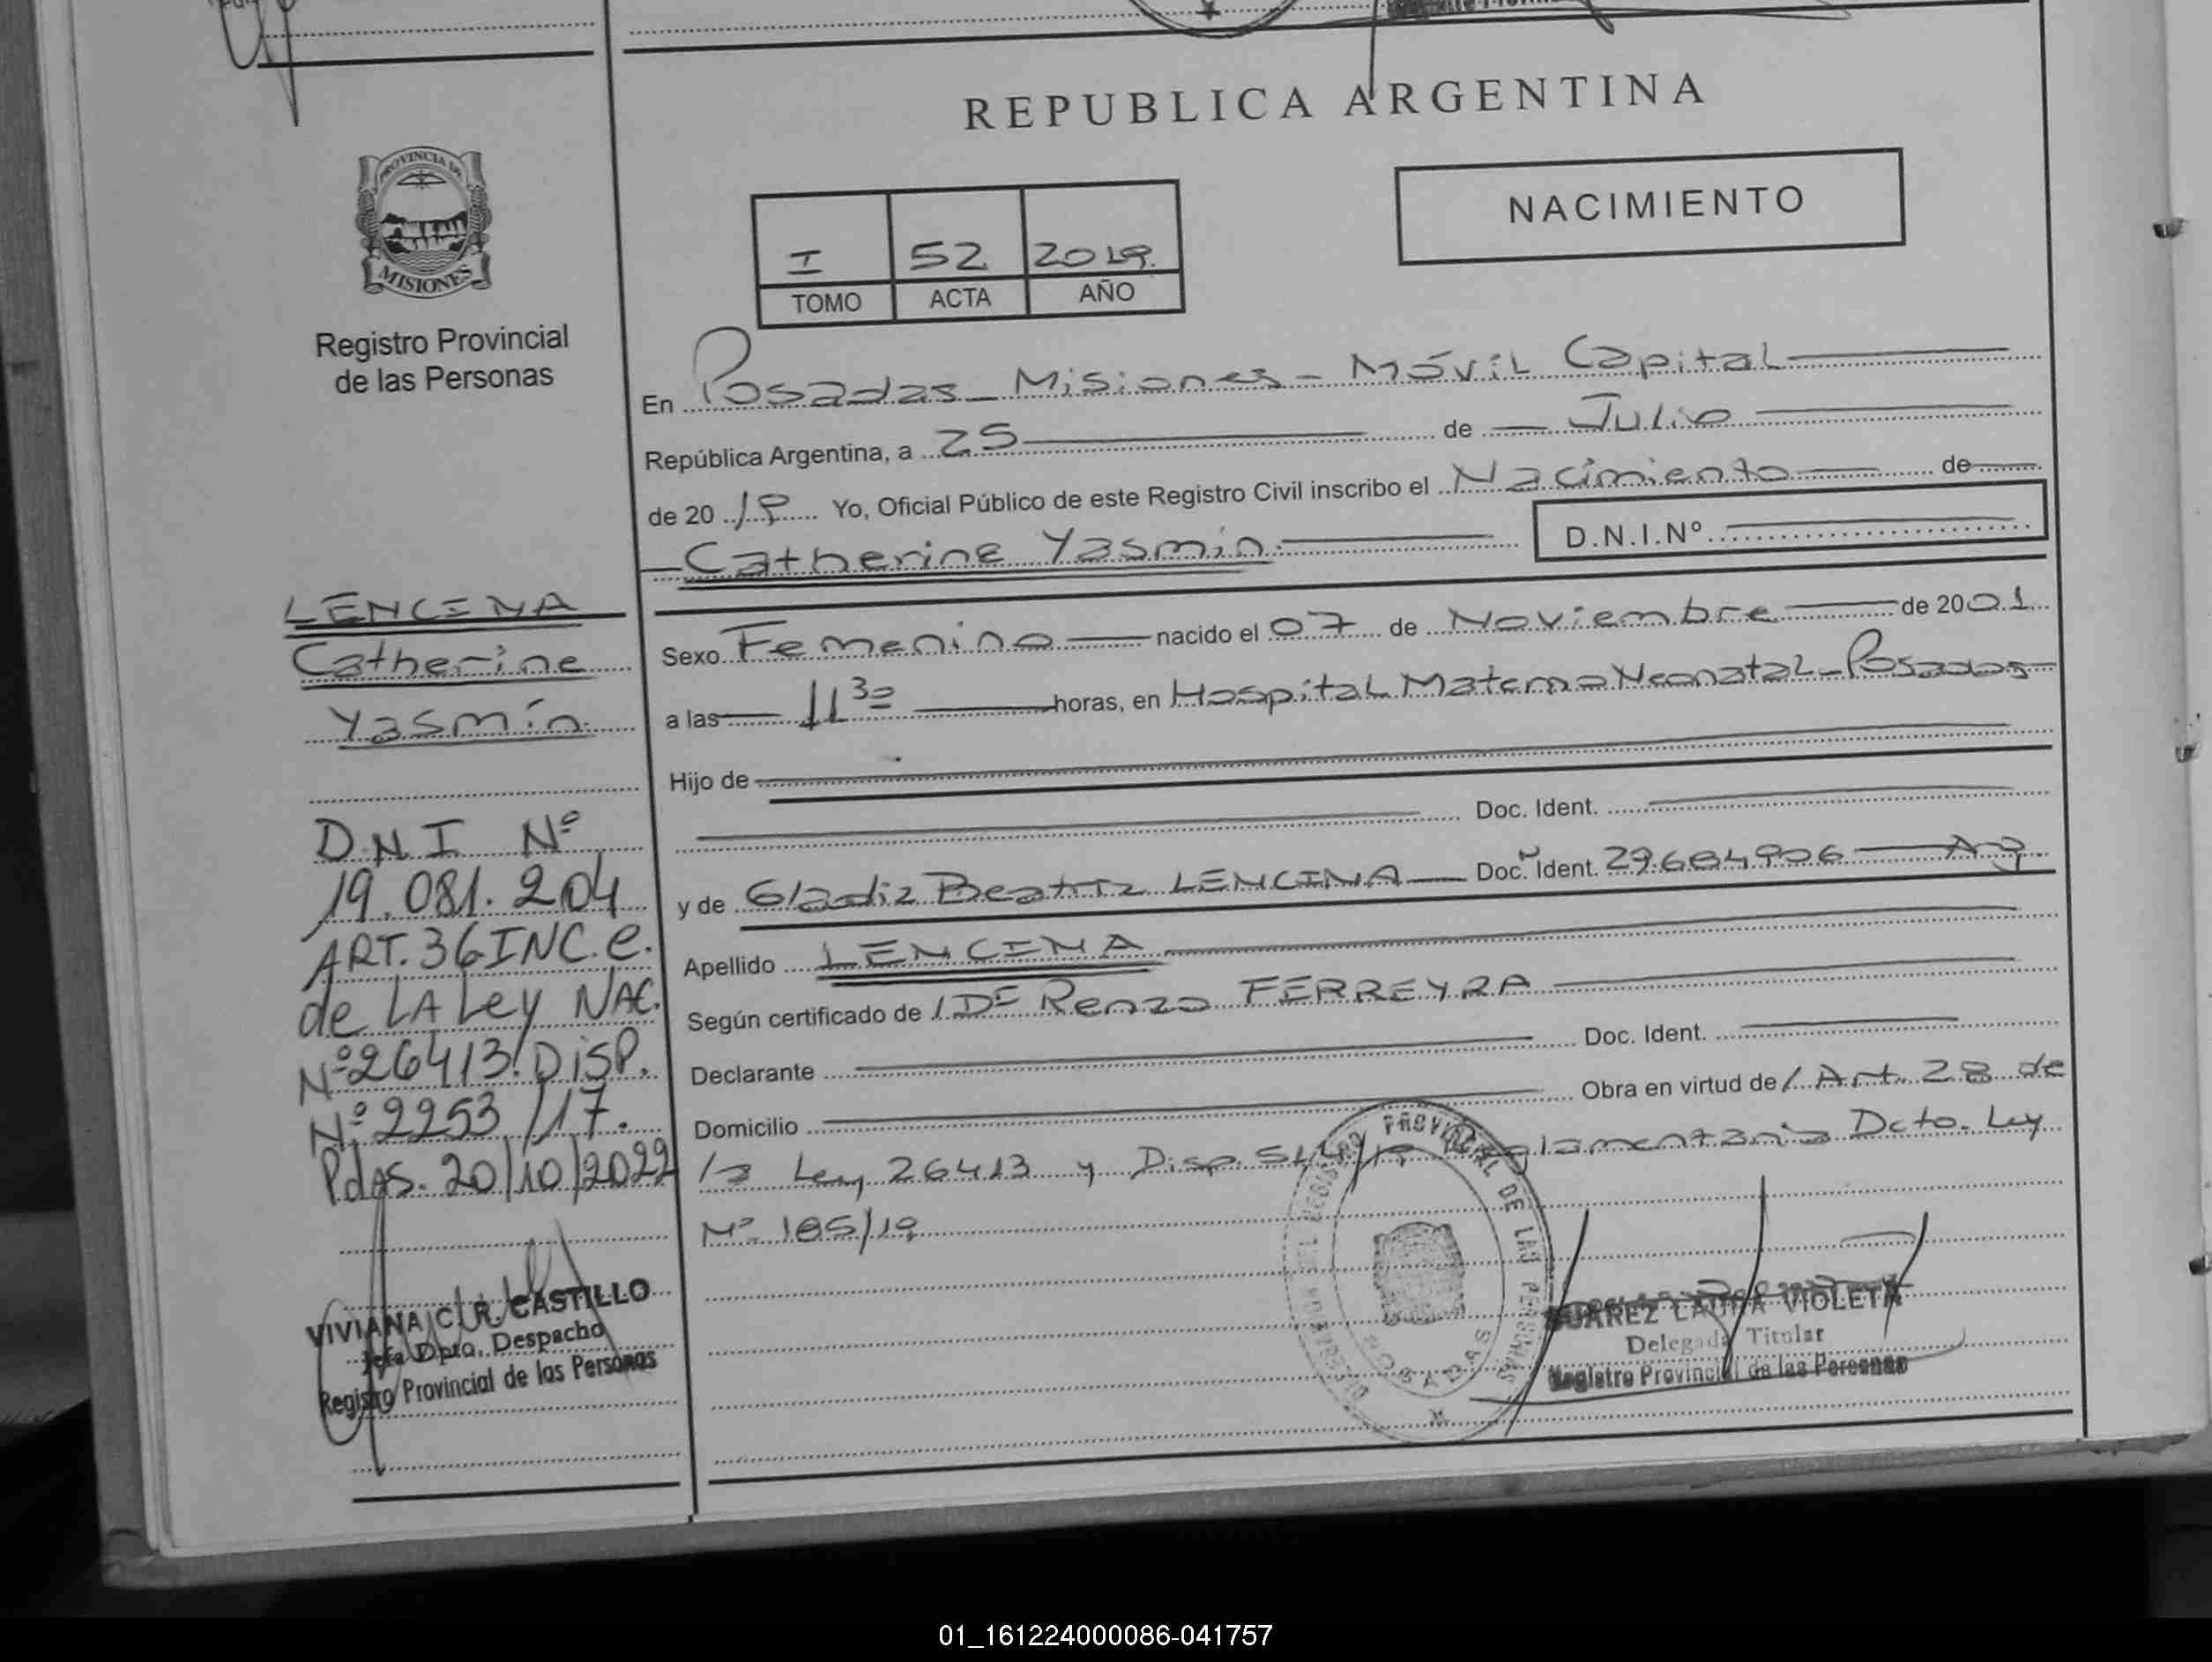 REPUBLICA ARGENTINA
NACIMIENTO
I 52 2019
TOMO ACTA AÑO
PROVINCIA DE
MISIONES
Registro Provincial
de las Personas
En Posadas - Misiones - Móvil Capital
República Argentina, a 25 de Julio
de 2019 Yo, Oficial Público de este Registro Civil inscribo el Nacimiento de
Catherine Yasmín D.N.I.Nº
Sexo Femenino nacido el 07 de Noviembre de 2001
a las 11 30 horas, en Hospital Materno Neonatal - Posadas
Hijo de
Doc. Ident.
y de Gladiz Beatriz LENCINA Doc. Ident. 29.684.906 Arg.
Apellido LENCINA
Según certificado de Dr Renzo FERREYRA
Declarante Doc. Ident.
Domicilio Obra en virtud de Art. 28 de
la Ley 26413 y Disp. Reglamentaria Dcto. Ley
Nº 185/19
LENCINA
Catherine
Yasmín
D.N.I Nº
19.081.204
ART.36 INC.e.
de LA Ley NAC.
Nº 26413. DISP.
Nº 2253/17.
Pdas. 20/10/2022
VIVIANA C. R. CASTILLO
Jefa Dpto. Despacho
Registro Provincial de las Personas
REGISTRO PROVINCIAL DE LAS PERSONAS
POSADAS
SUAREZ LAURA VIOLETA
Delegada Titular
Registro Provincial de las Personas
01_161224000086-041757